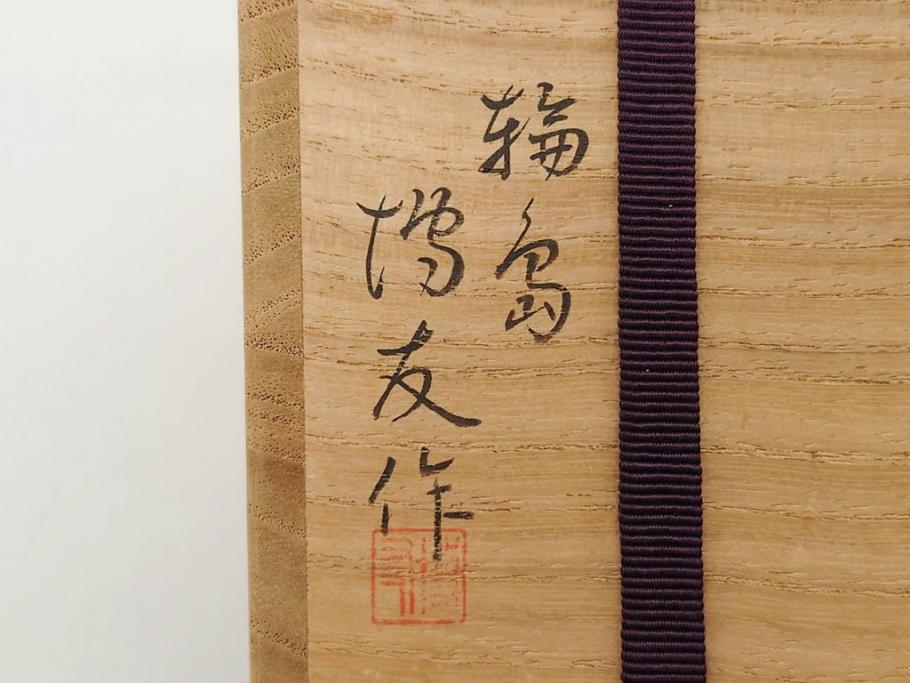 輪島
橋友作